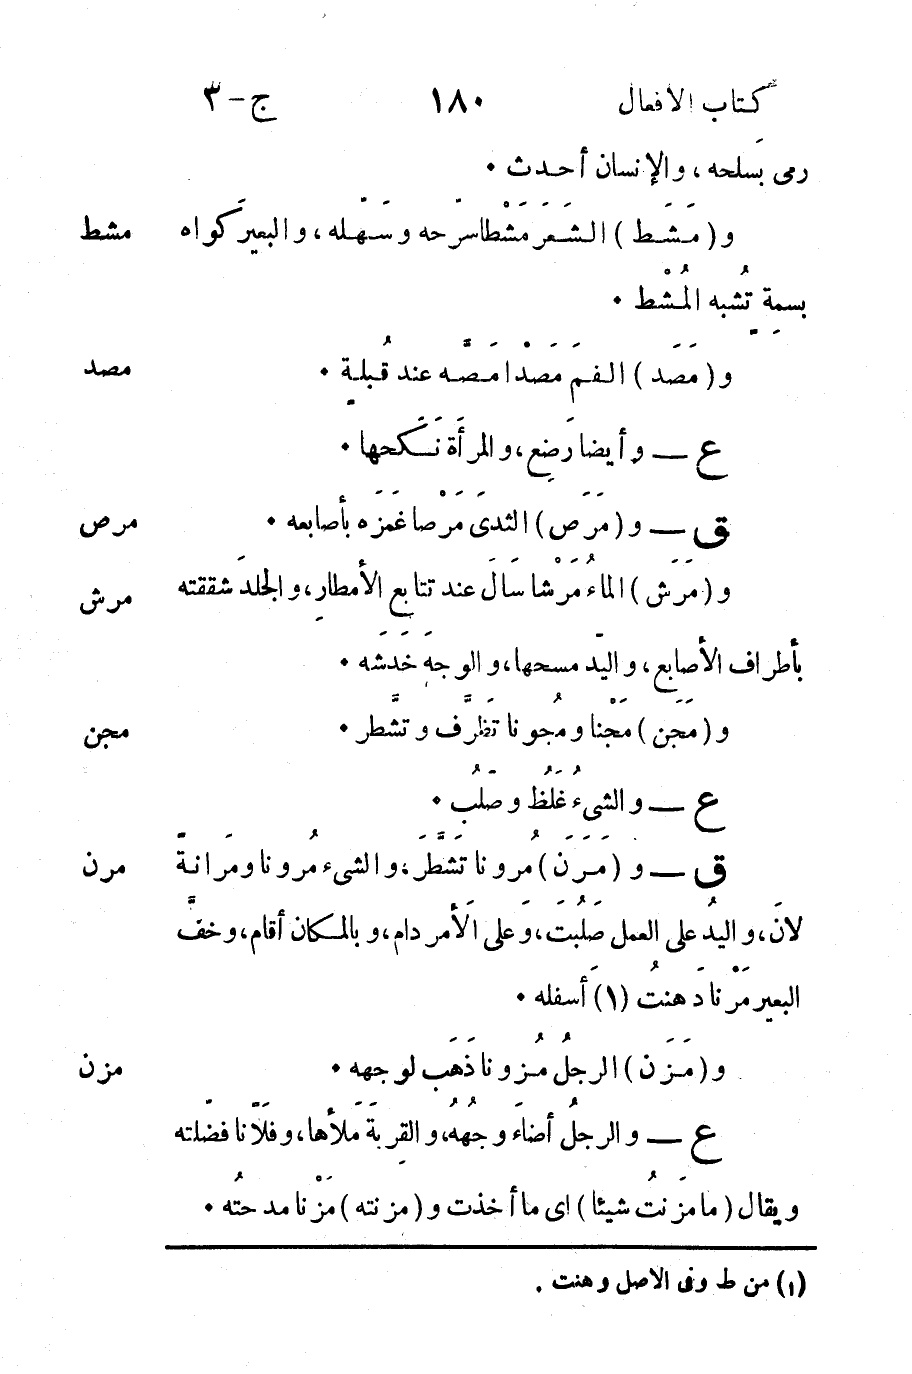 كتاب الافعال ١٨٠ ج-٣
رمى بسَلحه، والإنسان أحدث ٠
و(مَشَط) الشَعَر مَشْطا سرّحه وسَهّله، والبعيرَ كواه مشط
بسمةٍ تُشبه المُشْط ٠
و(مَصَد) الفمَ مَصْدا مَصَّه عند قُبلةٍ ٠ مصد
ع — وأيضا رَضع، والمرأَةَ نَكَحها ٠
ق — و(مَرَص) الثدىَ مَرْصا غمَزَه بأصابعه ٠ مرص
و(مَرَش) الماءُ مَرْشا سَالَ عند تتابع الأمطارِ، والجلدَ شققته مرش
بأطراف الأصابع، واليدّ مسحها، والوجهَ خَدَشَه ٠
و(مَجَن) مَجْنا ومُجونا تَظرَّف وتشَّطر ٠ مجن
ع — والشىءُ غَلُظ وصَلُب ٠
ق — و(مَرَنَ) مُرونا تشَطَّرَ، والشىءُ مُرونا ومَرانةً مرن
لانَ، واليدُ على العمل صَلُبتَ، وَعلى الأَمر دام، وبالمكان أقام، وخفَّ
البعيرِ مَرْنا دَهنتُ (١) أَسفله ٠
و(مَزَن) الرجلُ مُزونا ذَهَب لوجهه ٠ مزن
ع — والرجلُ أضاءَ وجهُهُ، والقِربةَ مَلأَها، وفلاّنا فضّلته
ويقال (ما مزَنتُ شيئا) اى ما أخذت و(مزنته) مَزْنا مدحتُه ٠
(١) من ط وفى الاصل وهنت .